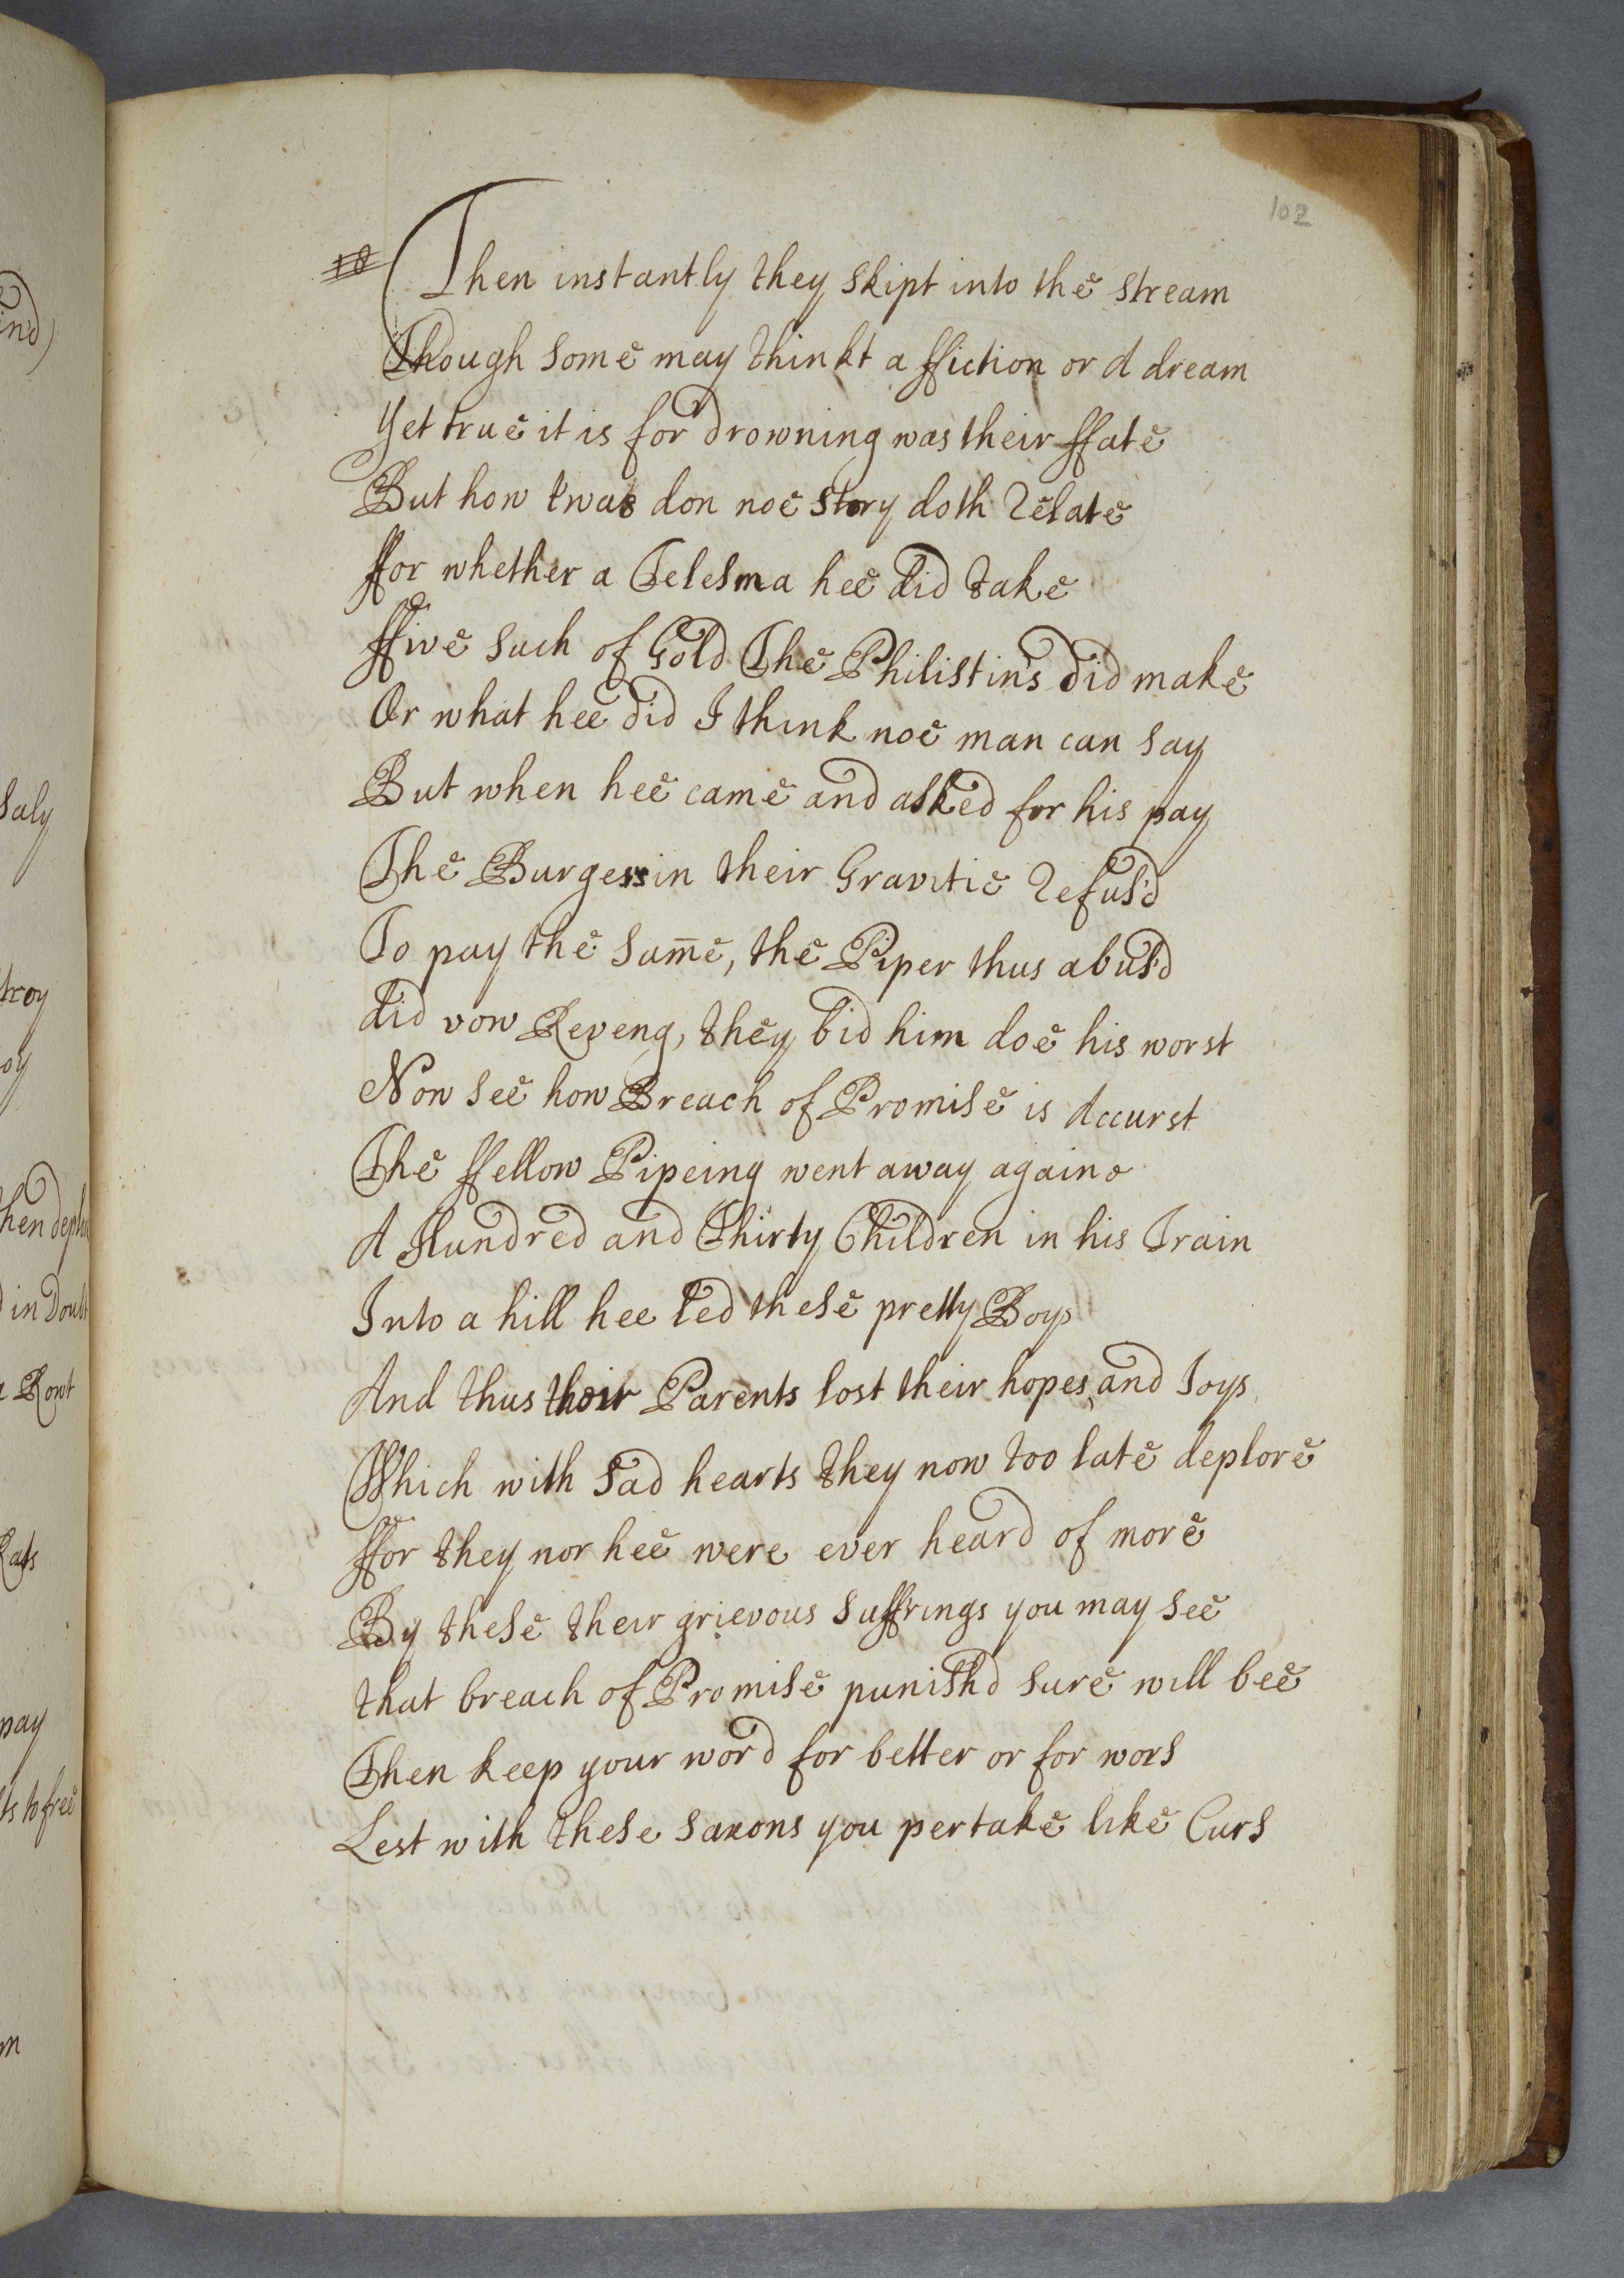 102
18 Then instantly they skipt into the stream
Though some may thinkt a ffiction or A dream
Yet true it is for drowning was their ffate
But how t'was don noe story doth Relate
ffor whether a Telesma hee did take
ffive such of Gold The Philistins did make
Or what hee did I think noe man can say
But when hee came and asked for his pay
The Burgess in their Gravitie Refus'd
To pay the sam̄e, the Piper thus abus'd
did vow Reveng, they bid him doe his worst
Now see how Breach of Promise is Accurst
The ffellow Pipeing went away againe
A Hundred and Thirty Children in his Train
Into a hill hee led these pretty Boys
And thus their Parents lost their hopes and Joys
Which with sad hearts they now too late deplore
ffor they nor hee were ever heard of more
By these their grievous suffrings you may see
that breach of Promise punish'd sure will bee
Then keep your word for better or for wors
Lest with these Saxons you pertake like Curs
saly
troy
oy
in Doubt
Rout
Rats
pay
ts to free